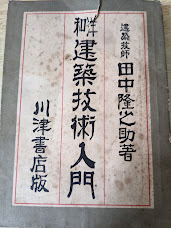 建築技師
田中隆之助著
和洋
建築技術入門
川津書店版